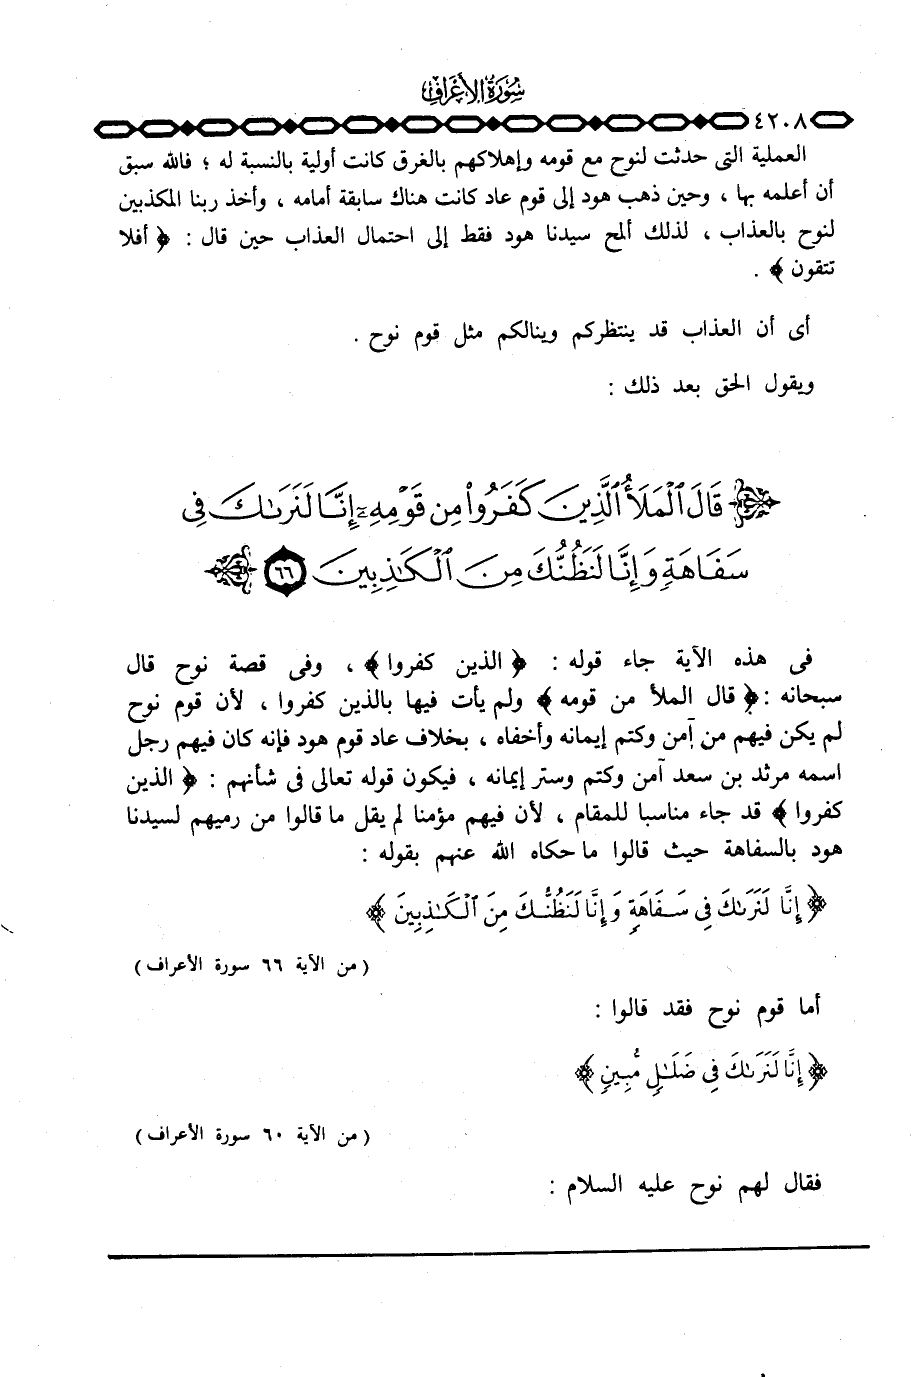 سُورَةُ الأَعْرَافِ
٤٢٠٨
العملية التى حدثت لنوح مع قومه وإهلاكهم بالغرق كانت أولية بالنسبة له ؛ فالله سبق
أن أعلمه بها ، وحين ذهب هود إلى قوم عاد كانت هناك سابقة أمامه ، وأخذ ربنا المكذبين
لنوح بالعذاب ، لذلك ألمح سيدنا هود فقط إلى احتمال العذاب حين قال : ﴿ أفلا
تتقون ﴾ .
أى أن العذاب قد ينتظركم وينالكم مثل قوم نوح .
ويقول الحق بعد ذلك :
﴿ قَالَ ٱلْمَلَأُ ٱلَّذِينَ كَفَرُوا۟ مِن قَوْمِهِۦٓ إِنَّا لَنَرَىٰكَ فِى
سَفَاهَةٍ وَإِنَّا لَنَظُنُّكَ مِنَ ٱلْكَٰذِبِينَ ٦٦ ﴾
فى هذه الآية جاء قوله : ﴿ الذين كفروا ﴾ ، وفى قصة نوح قال
سبحانه : ﴿ قال الملأ من قومه ﴾ ولم يأت فيها بالذين كفروا ، لأن قوم نوح
لم يكن فيهم من آمن وكتم إيمانه وأخفاه ، بخلاف عاد قوم هود فإنه كان فيهم رجل
اسمه مرثد بن سعد آمن وكتم وستر إيمانه ، فيكون قوله تعالى فى شأنهم : ﴿ الذين
كفروا ﴾ قد جاء مناسبا للمقام ، لأن فيهم مؤمنا لم يقل ما قالوا من رميهم لسيدنا
هود بالسفاهة حيث قالوا ما حكاه الله عنهم بقوله :
﴿ إِنَّا لَنَرَىٰكَ فِى سَفَاهَةٍ وَإِنَّا لَنَظُنُّكَ مِنَ ٱلْكَٰذِبِينَ ﴾
( من الآية ٦٦ سورة الأعراف )
أما قوم نوح فقد قالوا :
﴿ إِنَّا لَنَرَىٰكَ فِى ضَلَٰلٍ مُّبِينٍ ﴾
( من الآية ٦٠ سورة الأعراف )
فقال لهم نوح عليه السلام :